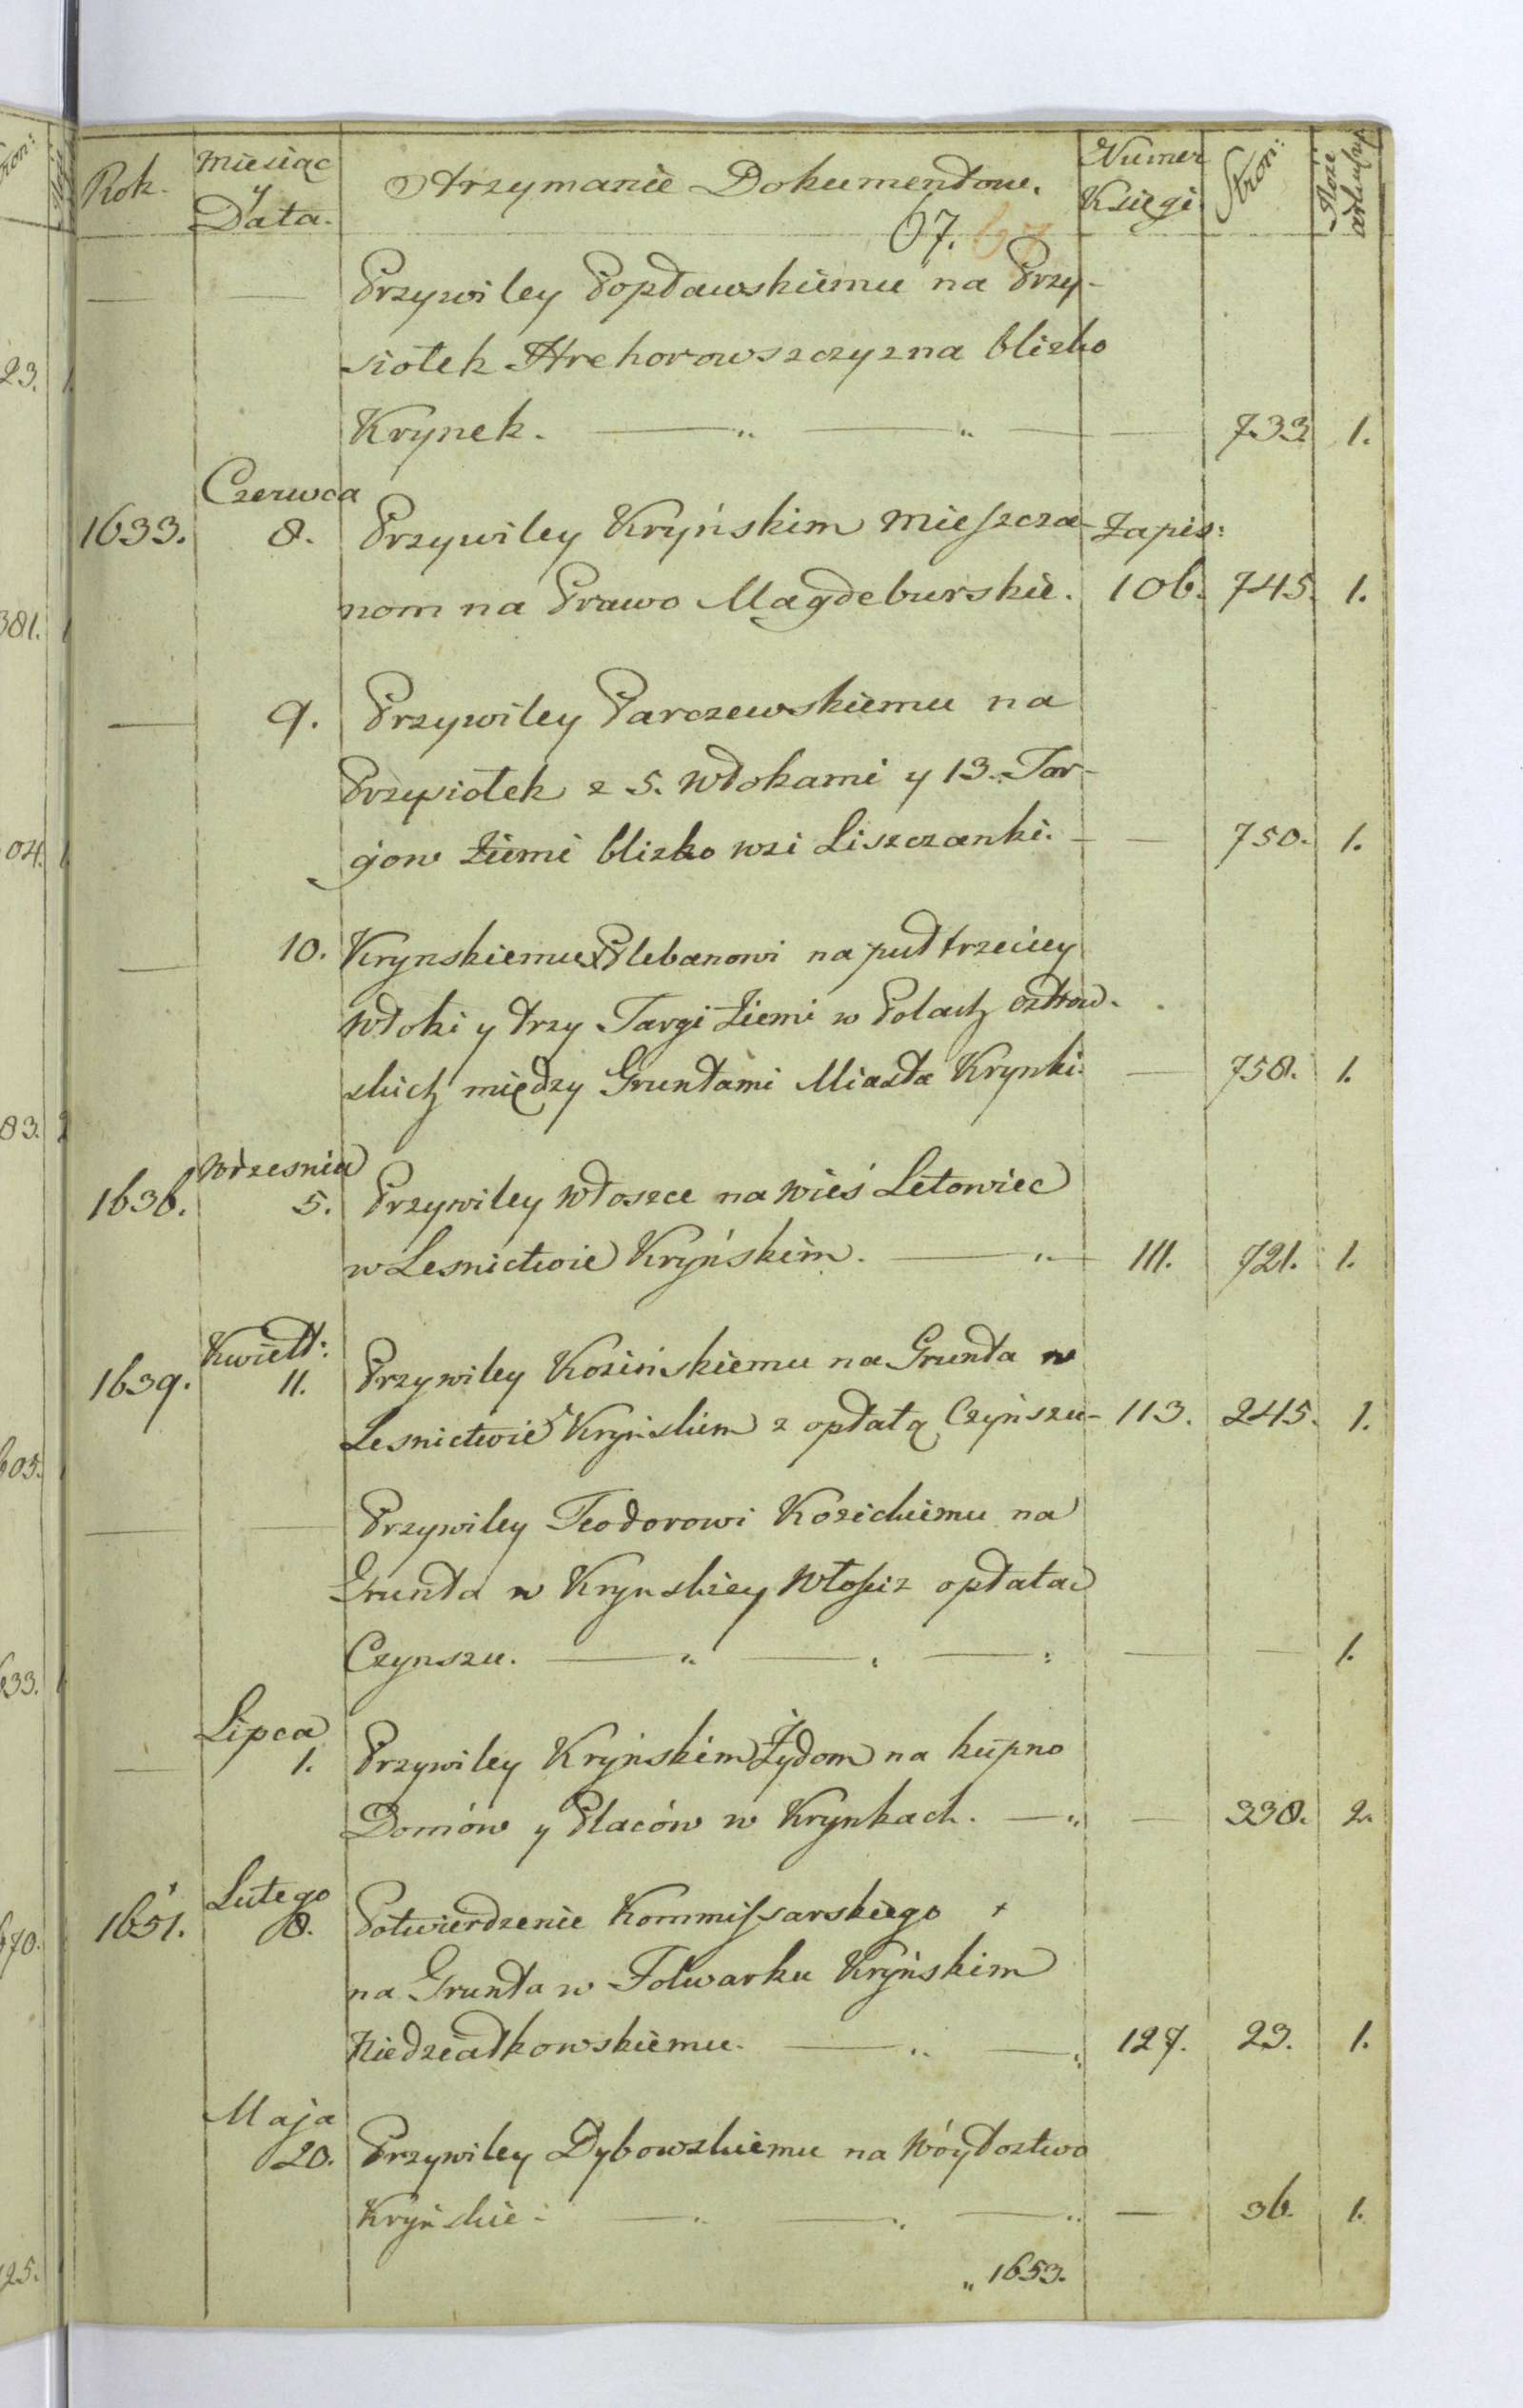 Rok. Miesiąc y Data. Otrzymanie Dokumentow. Numer Księgi Stron: Ilość
67. 67
— — Przywiley Popławskiemu na Przy-
siołek Hrehorowszczyzna blizko
Krynek. — „ — „ — — 733 1.
Czerwca
1633. 8. Przywiley Kryńskim Mieszcza- Zapis:
nom na Prawo Magdeburskie. 106. 745. 1.
— 9. Przywiley Parczewskiemu na
Przysiołek z 5. Włokami y 13. Mor-
gow Ziemi blizko wsi Liszczanki. — — 750. 1.
— 10. Krynskiemu Plebanowi na puł trzeciey
Włoki y trzy Morgi Ziemi w Polach ostrow-
skich między Gruntami Miasta Krynki. — 758. 1.
Września
1636. 5. Przywiley Włoszce na Wieś Letowiec
w Lesnictwie Kryńskim. — „ — 111. 721. 1.
Kwiett:
1639. 11. Przywiley Kozińskiemu na Grunta w
Lesnictwie Kryńskim z opłatą Czyńszu - 113. 245. 1.
— — Przywiley Teodorowi Kozickiemu na
Grunta w Krynskiey Włości z opłatą
Czynszu. — „ — „ — : — — 1.
Lipca
— 1. Przywiley Kryńskim Żydom na kupno
Domów y Placów w Krynkach. — „ — 338. 2.
Lutego
1651. 8. Potwierdzenie Kommissarskiego +
na Grunta w Folwarku Kryńskim
Niedziałkowskiemu. — „ — „ 127. 23. 1.
Maja
20. Przywiley Dybowskiemu na Wóytostwo
Kryńskie - — „ — „ — „ — 36. 1.
„ 1653.
23. 1.
381. 1
04. 1.
83.
605.
633.
670.
125.